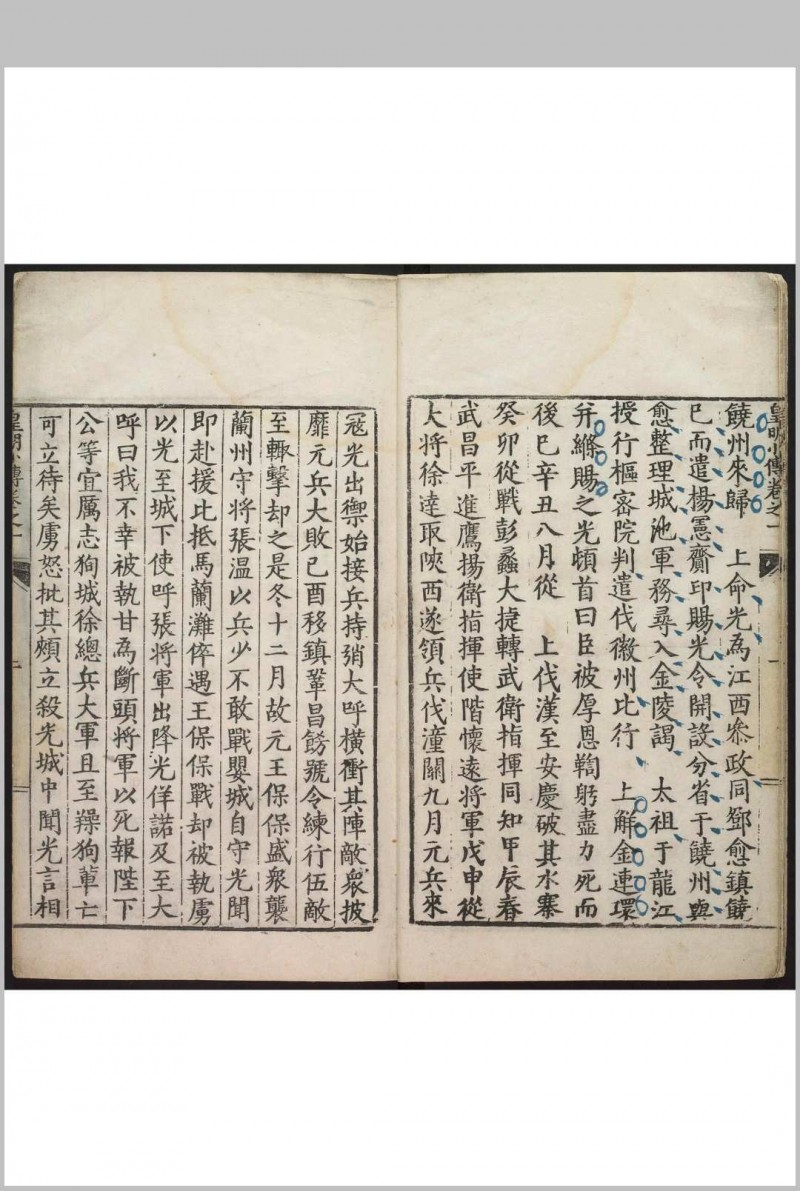 皇明小傳卷之一
饒州來歸　上命光為江西叅政同鄧愈鎮饒
已而遣楊憲齎印賜光令開設分省于饒州與
愈整理城池軍務尋入金陵謁　太祖于龍江
授行樞密院判遣伐徽州比行　上解金連環
并縧賜之光頓首曰臣被厚恩鞠躬盡力死而
後已辛丑八月從　上伐漢至安慶破其水寨
癸卯從戰彭蠡大捷轉武衛指揮同知甲辰春
武昌平進鷹揚衛指揮使階懷遠將軍戊申從
大將徐達取陝西遂領兵伐潼關九月元兵來
冦光出禦始接兵持矟大呼橫衝其陣敵衆披
靡元兵大敗己酉移鎮鞏昌餝號令練行伍敵
至輙擊却之是冬十二月故元王保保盛衆襲
蘭州守將張温以兵少不敢戰嬰城自守光聞
即赴援比抵馬蘭灘倅遇王保保戰却被執虜
以光至城下使呼張將軍出降光佯諾及至大
呼曰我不幸被執甘為斷頭將軍以死報陛下
公等宜厲志狥城徐總兵大軍且至羶狗軰亡
可立待矣虜怒批其頰立殺光城中聞光言相
皇明小傳卷之一